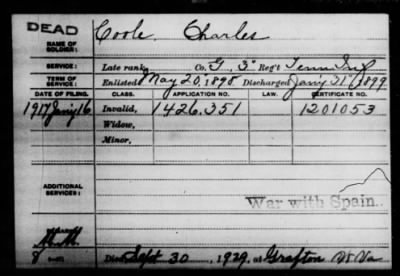 DEAD
NAME OF SOLDIER: Coole, Charles
SERVICE: Late rank, Co. G, 3" Reg't Tenn Inf
TERM OF SERVICE: Enlisted May 20, 1898 Discharged Jany 31, 1899
DATE OF FILING. CLASS. APPLICATION NO. LAW. CERTIFICATE NO.
1917 Jany 16 Invalid, 1426.351 1201053
Widow,
Minor,
ADDITIONAL SERVICES:
War with Spain.
Died Sept 30, 1929, at Grafton W Va